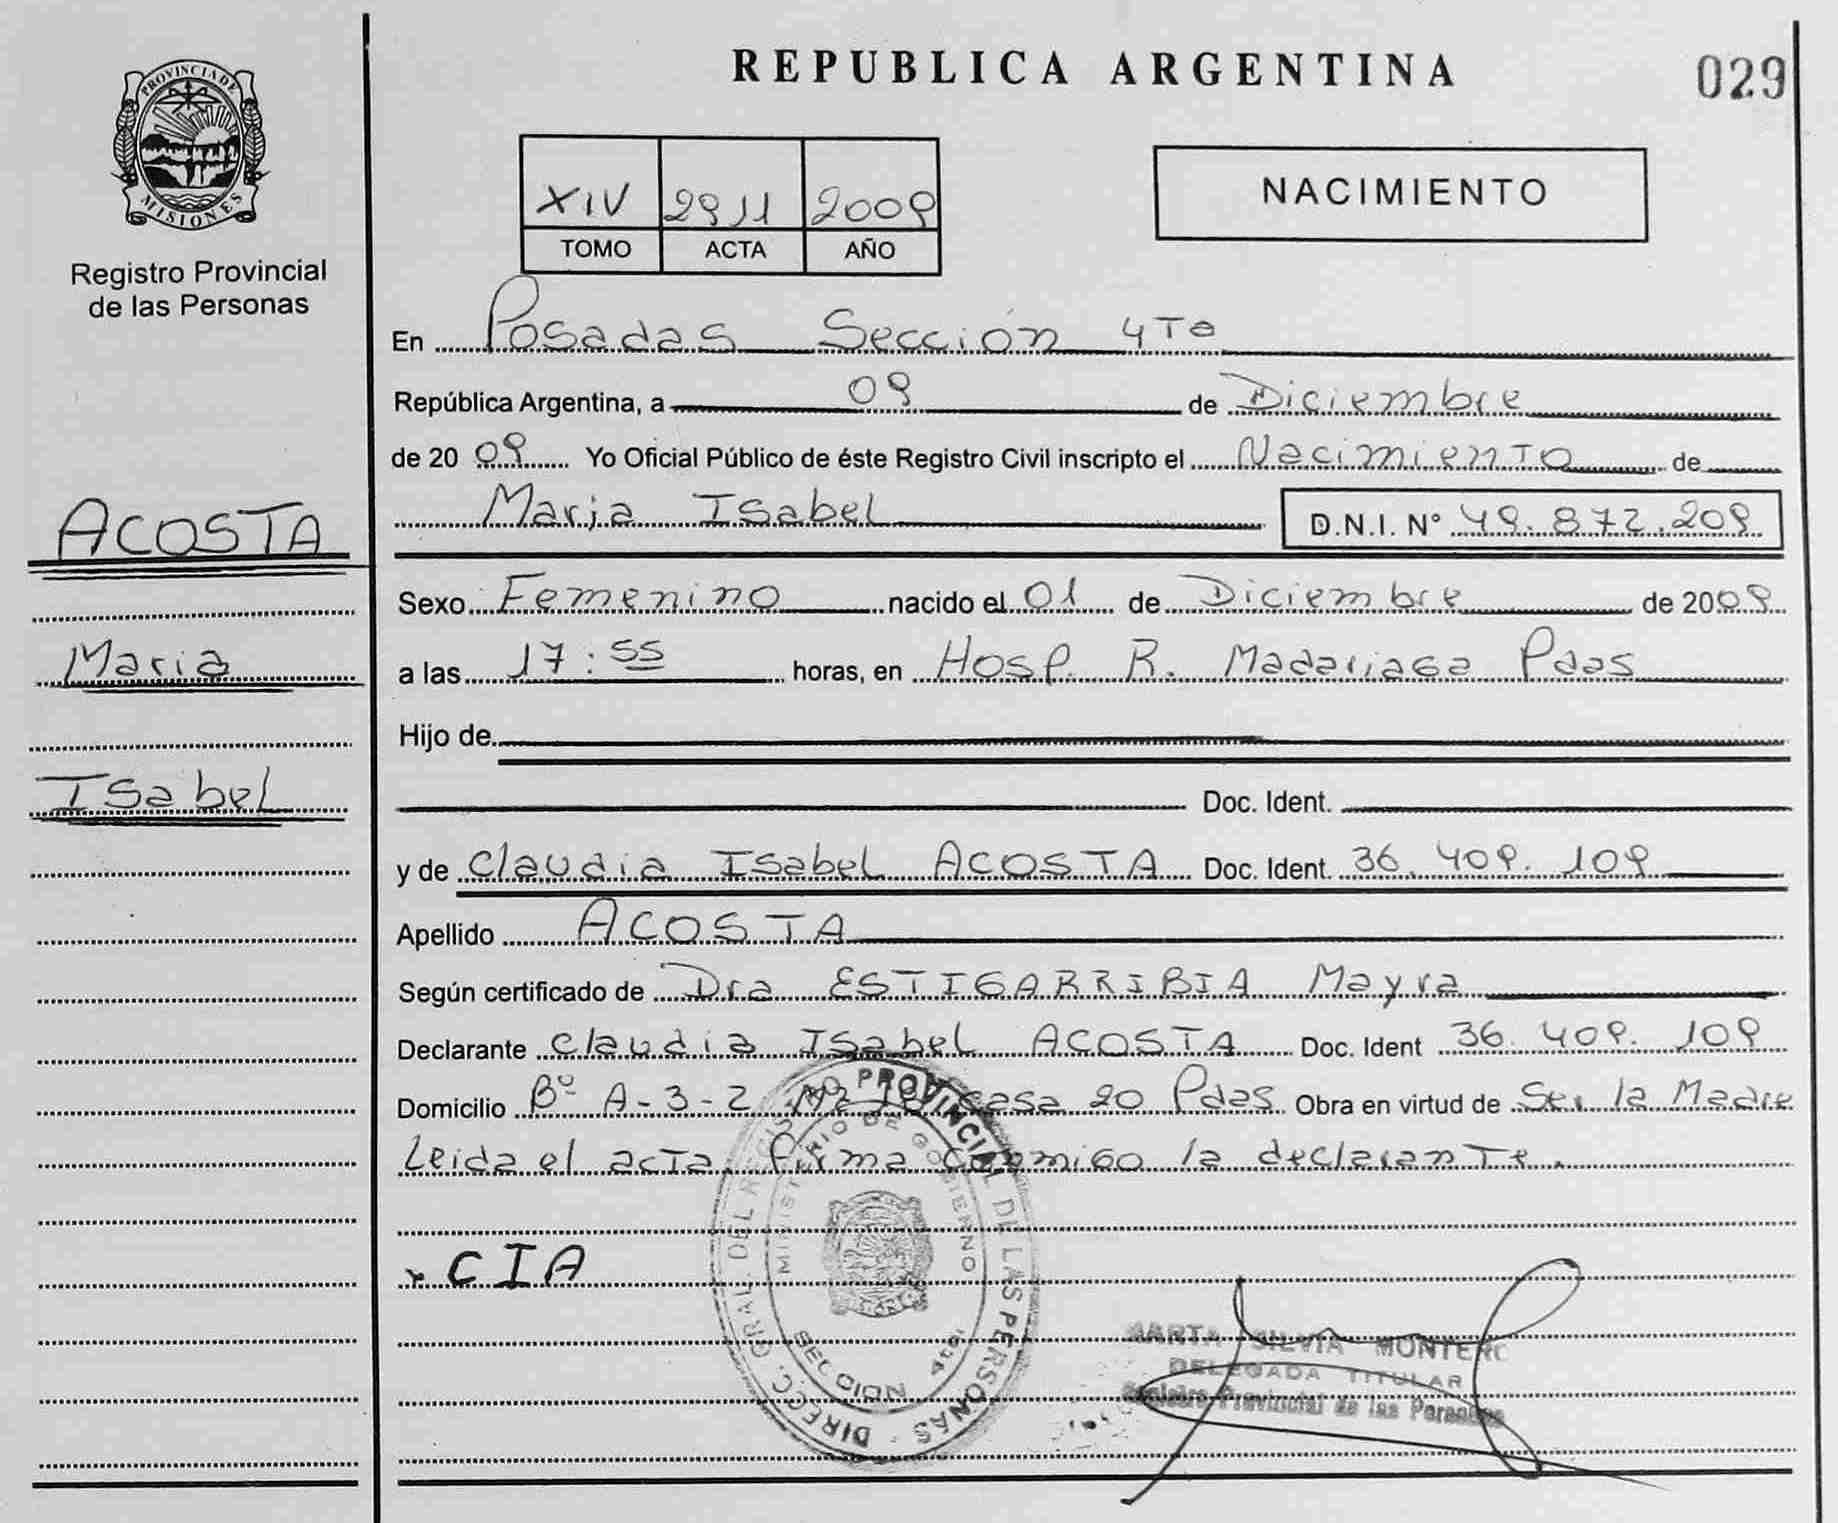 REPUBLICA ARGENTINA
029
PROVINCIA DE MISIONES
Registro Provincial
de las Personas
XIV 2911 2009
TOMO ACTA AÑO
NACIMIENTO
En Posadas Sección 4Ta
República Argentina, a 09 de Diciembre
de 20 09 Yo Oficial Público de éste Registro Civil inscripto el Nacimiento de
Maria Isabel D.N.I. N° 49.872.209
ACOSTA
Maria
Isabel
Sexo Femenino nacido el 01 de Diciembre de 2009
a las 17:55 horas, en Hosp. R. Madariaga Pdas
Hijo de
Doc. Ident.
y de Claudia Isabel ACOSTA Doc. Ident. 36.409.109
Apellido ACOSTA
Según certificado de Dra ESTIGARRIBIA Mayra
Declarante Claudia Isabel ACOSTA Doc. Ident 36.409.109
Domicilio Bº A-3-2 Mz casa 20 Pdas Obra en virtud de Ser la Madre
Leida el acta, firma conmigo la declarante.
x CIA
DIRECC. GRAL. DEL REGISTRO PROVINCIAL DE LAS PERSONAS
MINISTERIO DE GOBIERNO
SECCION 4ta
MARTA SILVIA MONTERO
DELEGADA TITULAR
Registro Provincial de las Personas